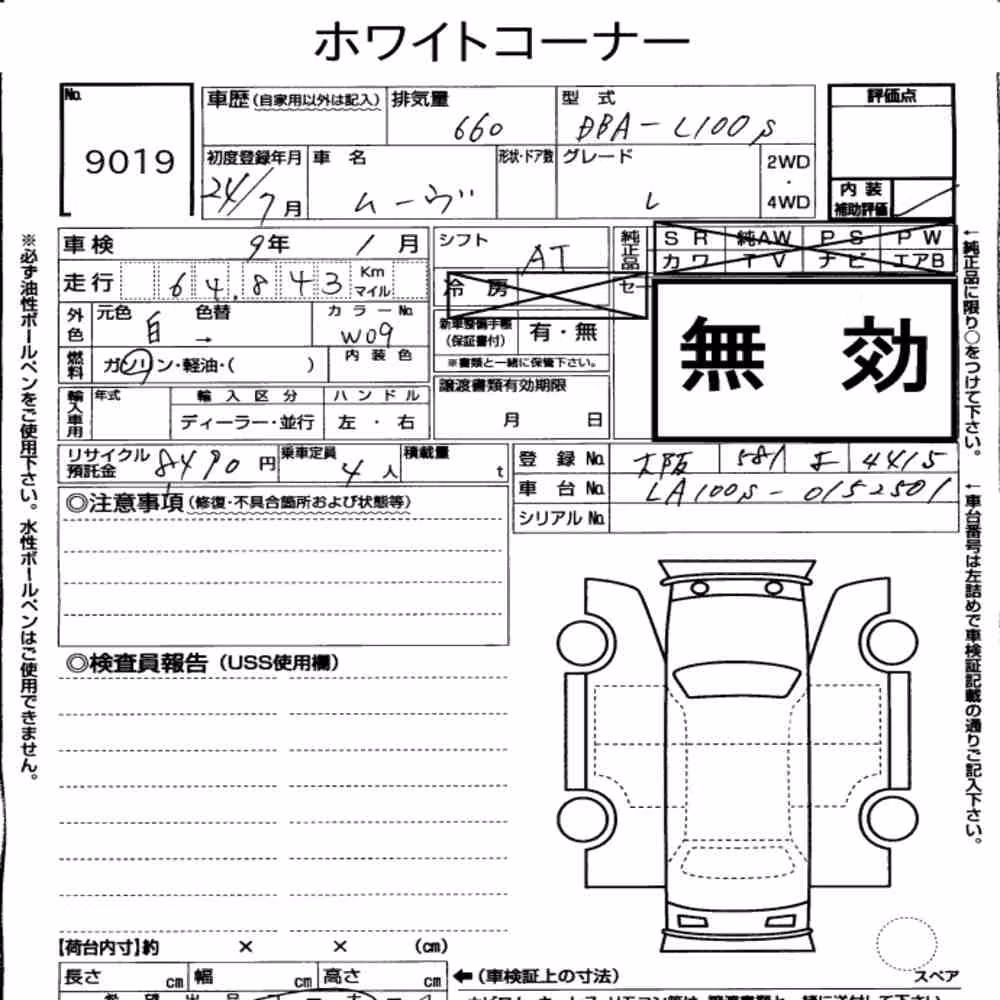 ホワイトコーナー
No.
9019
車歴(自家用以外は記入)
排気量
660
型 式
DBA-L100S
評価点
初度登録年月
24/7月
車 名
ムーヴ
形状・ドア数
グレード
L
2WD
・
4WD
内 装
補助評価
車検 9年 1月
シフト
AT
純正品
SR 純AW PS PW
カワ TV ナビ エアB
走行 64,843 Km
マイル
冷 房
セー
無 効
外色
元色 白
色替 →
カラーNo.
W09
新車整備手帳
(保証書付)
有・無
※書類と一緒に保管下さい。
燃料
ガソリン・軽油・( )
内 装 色
輸入車用
年式
輸 入 区 分
ディーラー・並行
ハ ン ド ル
左 ・ 右
譲渡書類有効期限
月 日
リサイクル
預託金
8490円
乗車定員
4人
積載量
t
登 録 No. 大阪 581 よ 4415
車 台 No. LA100S-0152501
シリアル No.
◎注意事項(修復・不具合箇所および状態等)
◎検査員報告(USS使用欄)
【荷台内寸】約 × × (cm)
長さ cm 幅 cm 高さ cm ←(車検証上の寸法)
スペア
※必ず油性ボールペンをご使用下さい。水性ボールペンはご使用できません。
←純正品に限り○をつけて下さい。
←車台番号は左詰めで車検証記載の通りご記入下さい。